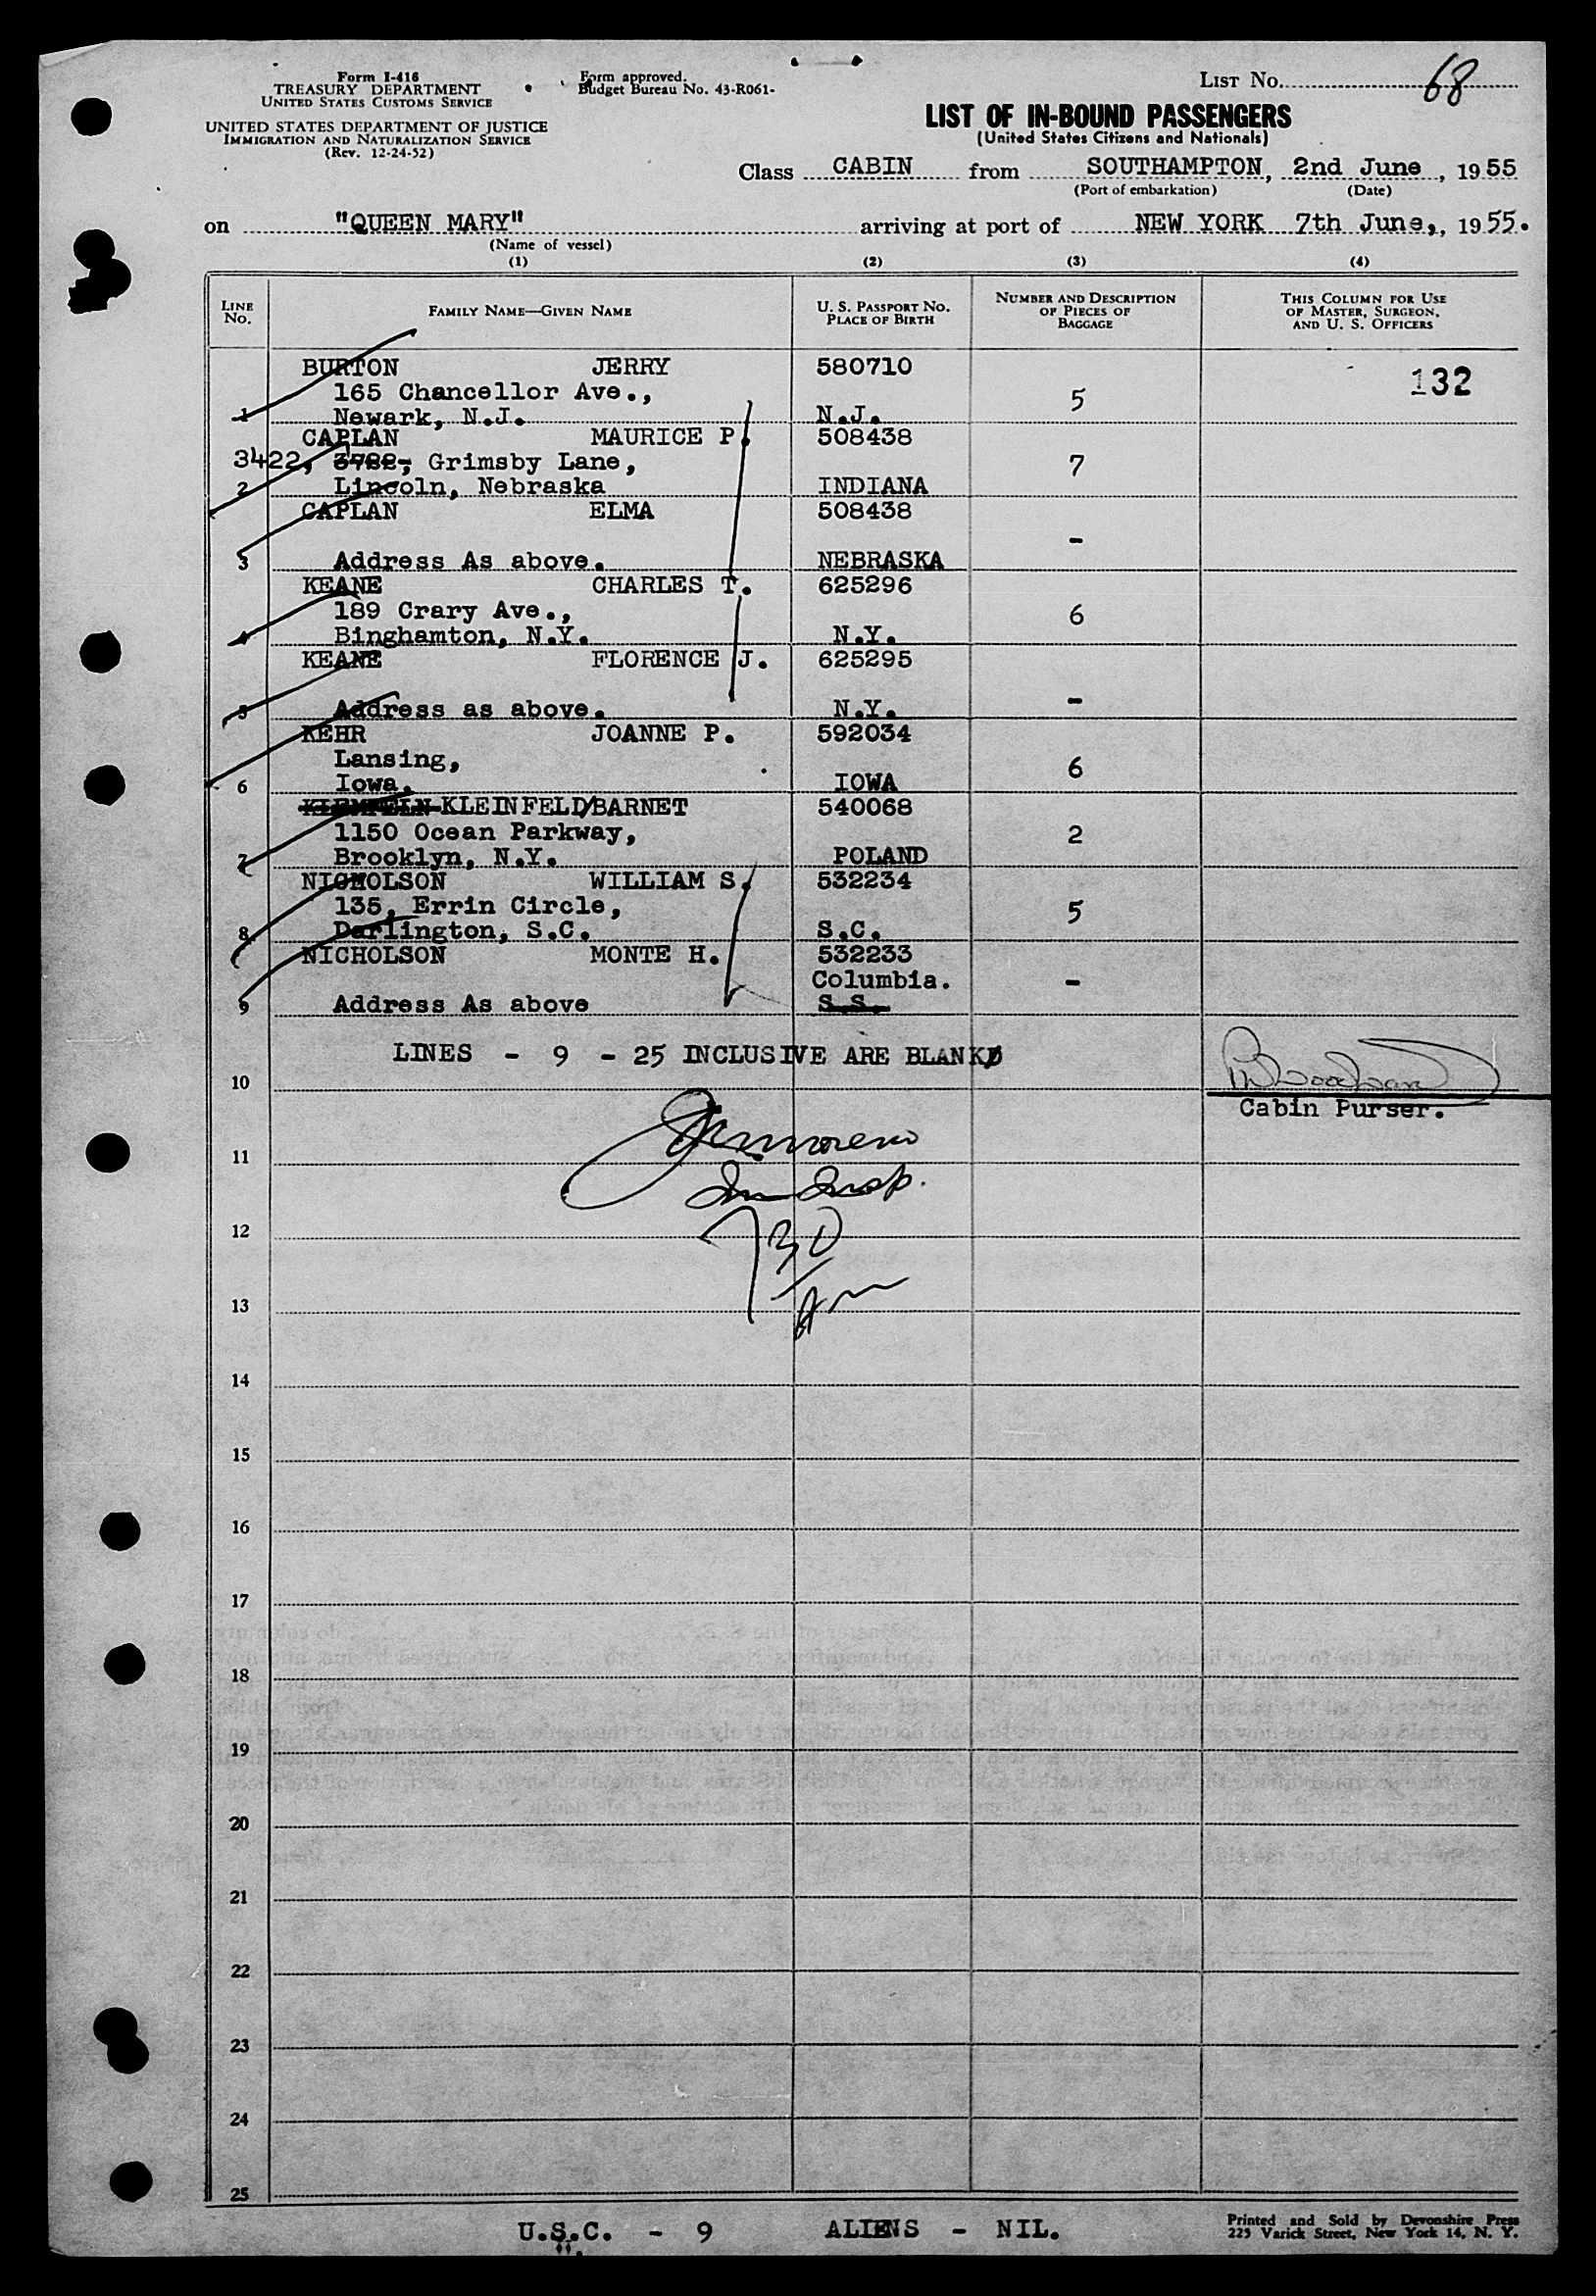 Form I-416
TREASURY DEPARTMENT
UNITED STATES CUSTOMS SERVICE
UNITED STATES DEPARTMENT OF JUSTICE
IMMIGRATION AND NATURALIZATION SERVICE
(Rev. 12-24-52)
Form approved.
Budget Bureau No. 43-R061-
LIST No. 68
LIST OF IN-BOUND PASSENGERS
(United States Citizens and Nationals)
Class CABIN from SOUTHAMPTON, 2nd June, 1955
(Port of embarkation) (Date)
on "QUEEN MARY" arriving at port of NEW YORK 7th June,, 1955.
(Name of vessel)
(1) (2) (3) (4)
LINE No. FAMILY NAME—GIVEN NAME U. S. PASSPORT NO. PLACE OF BIRTH NUMBER AND DESCRIPTION OF PIECES OF BAGGAGE THIS COLUMN FOR USE OF MASTER, SURGEON, AND U. S. OFFICERS
BURTON JERRY 580710 132
165 Chancellor Ave., 5
1 Newark, N.J. N.J.
CAPLAN MAURICE P. 508438
3422, 3788, Grimsby Lane, 7
2 Lincoln, Nebraska INDIANA
CAPLAN ELMA 508438
-
3 Address As above. NEBRASKA
KEANE CHARLES T. 625296
189 Crary Ave., 6
4 Binghamton, N.Y. N.Y.
KEANE FLORENCE J. 625295
5 Address as above. N.Y. -
KEHR JOANNE P. 592034
Lansing, 6
6 Iowa. IOWA
KLEINFELD/BARNET 540068
1150 Ocean Parkway, 2
7 Brooklyn, N.Y. POLAND
NICHOLSON WILLIAM S. 532234
135, Errin Circle, 5
8 Darlington, S.C. S.C.
NICHOLSON MONTE H. 532233
Columbia. -
9 Address As above S.S.
LINES - 9 - 25 INCLUSIVE ARE BLANK
10
Cabin Purser.
11
Imm Insp.
12
730
13
Am
14
15
16
17
18
19
20
21
22
23
24
25
U.S.C. - 9 ALIENS - NIL.
Printed and Sold by Devonshire Press
225 Varick Street, New York 14, N. Y.